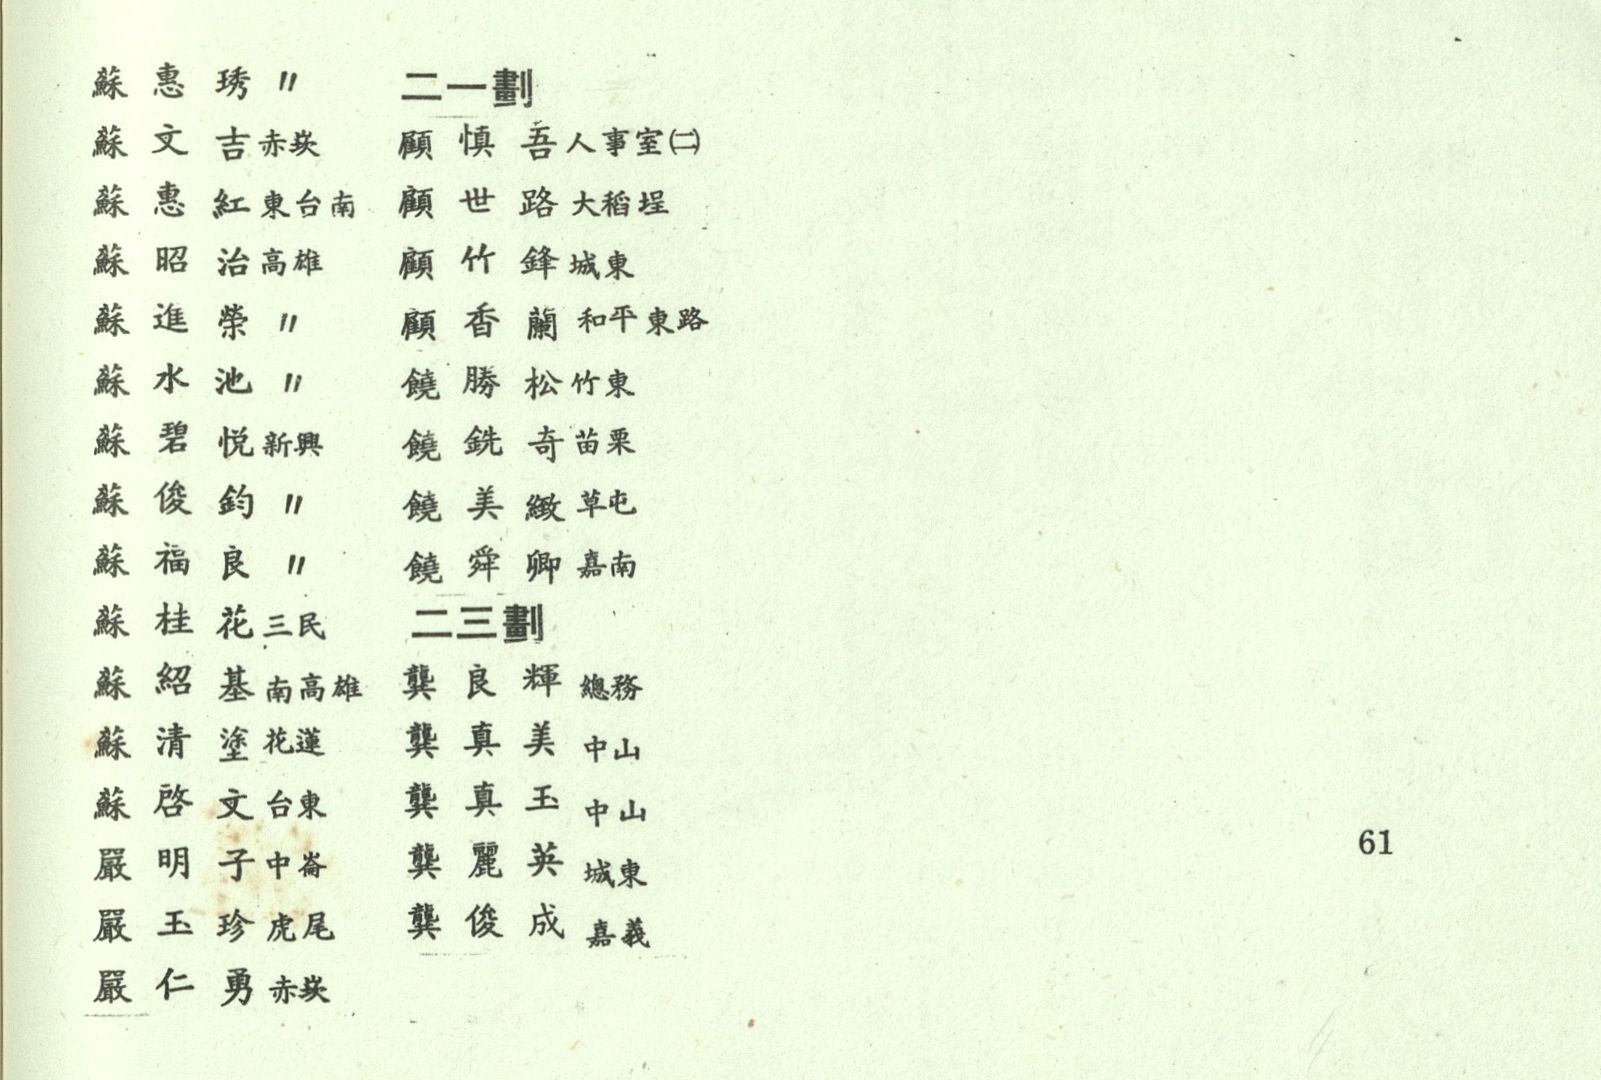 蘇惠琇〃
蘇文吉赤崁
蘇惠紅東台南
蘇昭治高雄
蘇進榮〃
蘇水池〃
蘇碧悦新興
蘇俊鈞〃
蘇福良〃
蘇桂花三民
蘇紹基南高雄
蘇清塗花蓮
蘇啓文台東
嚴明子中崙
嚴玉珍虎尾
嚴仁勇赤崁
二一劃
顧慎吾人事室㈡
顧世路大稻埕
顧竹鋒城東
顧香蘭和平東路
饒勝松竹東
饒銑奇苗栗
饒美緻草屯
饒舜卿嘉南
二三劃
龔良輝總務
龔真美中山
龔真玉中山
龔麗英城東
龔俊成嘉義
61